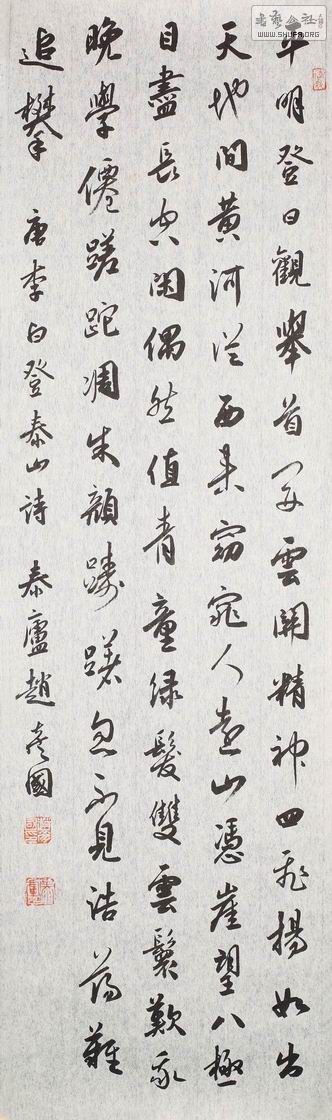 书艺公社
WWW.SHUFA.ORG
平明登日觀舉首開雲關精神四飛揚如出
天地間黃河從西來窈窕入遠山憑崖望八極
目盡長空閑偶然值青童綠髮雙雲鬟歎我
晚學僊蹉跎凋朱顏躊躇忽不見浩蕩難
追攀 唐李白登泰山詩 泰廬趙彥國